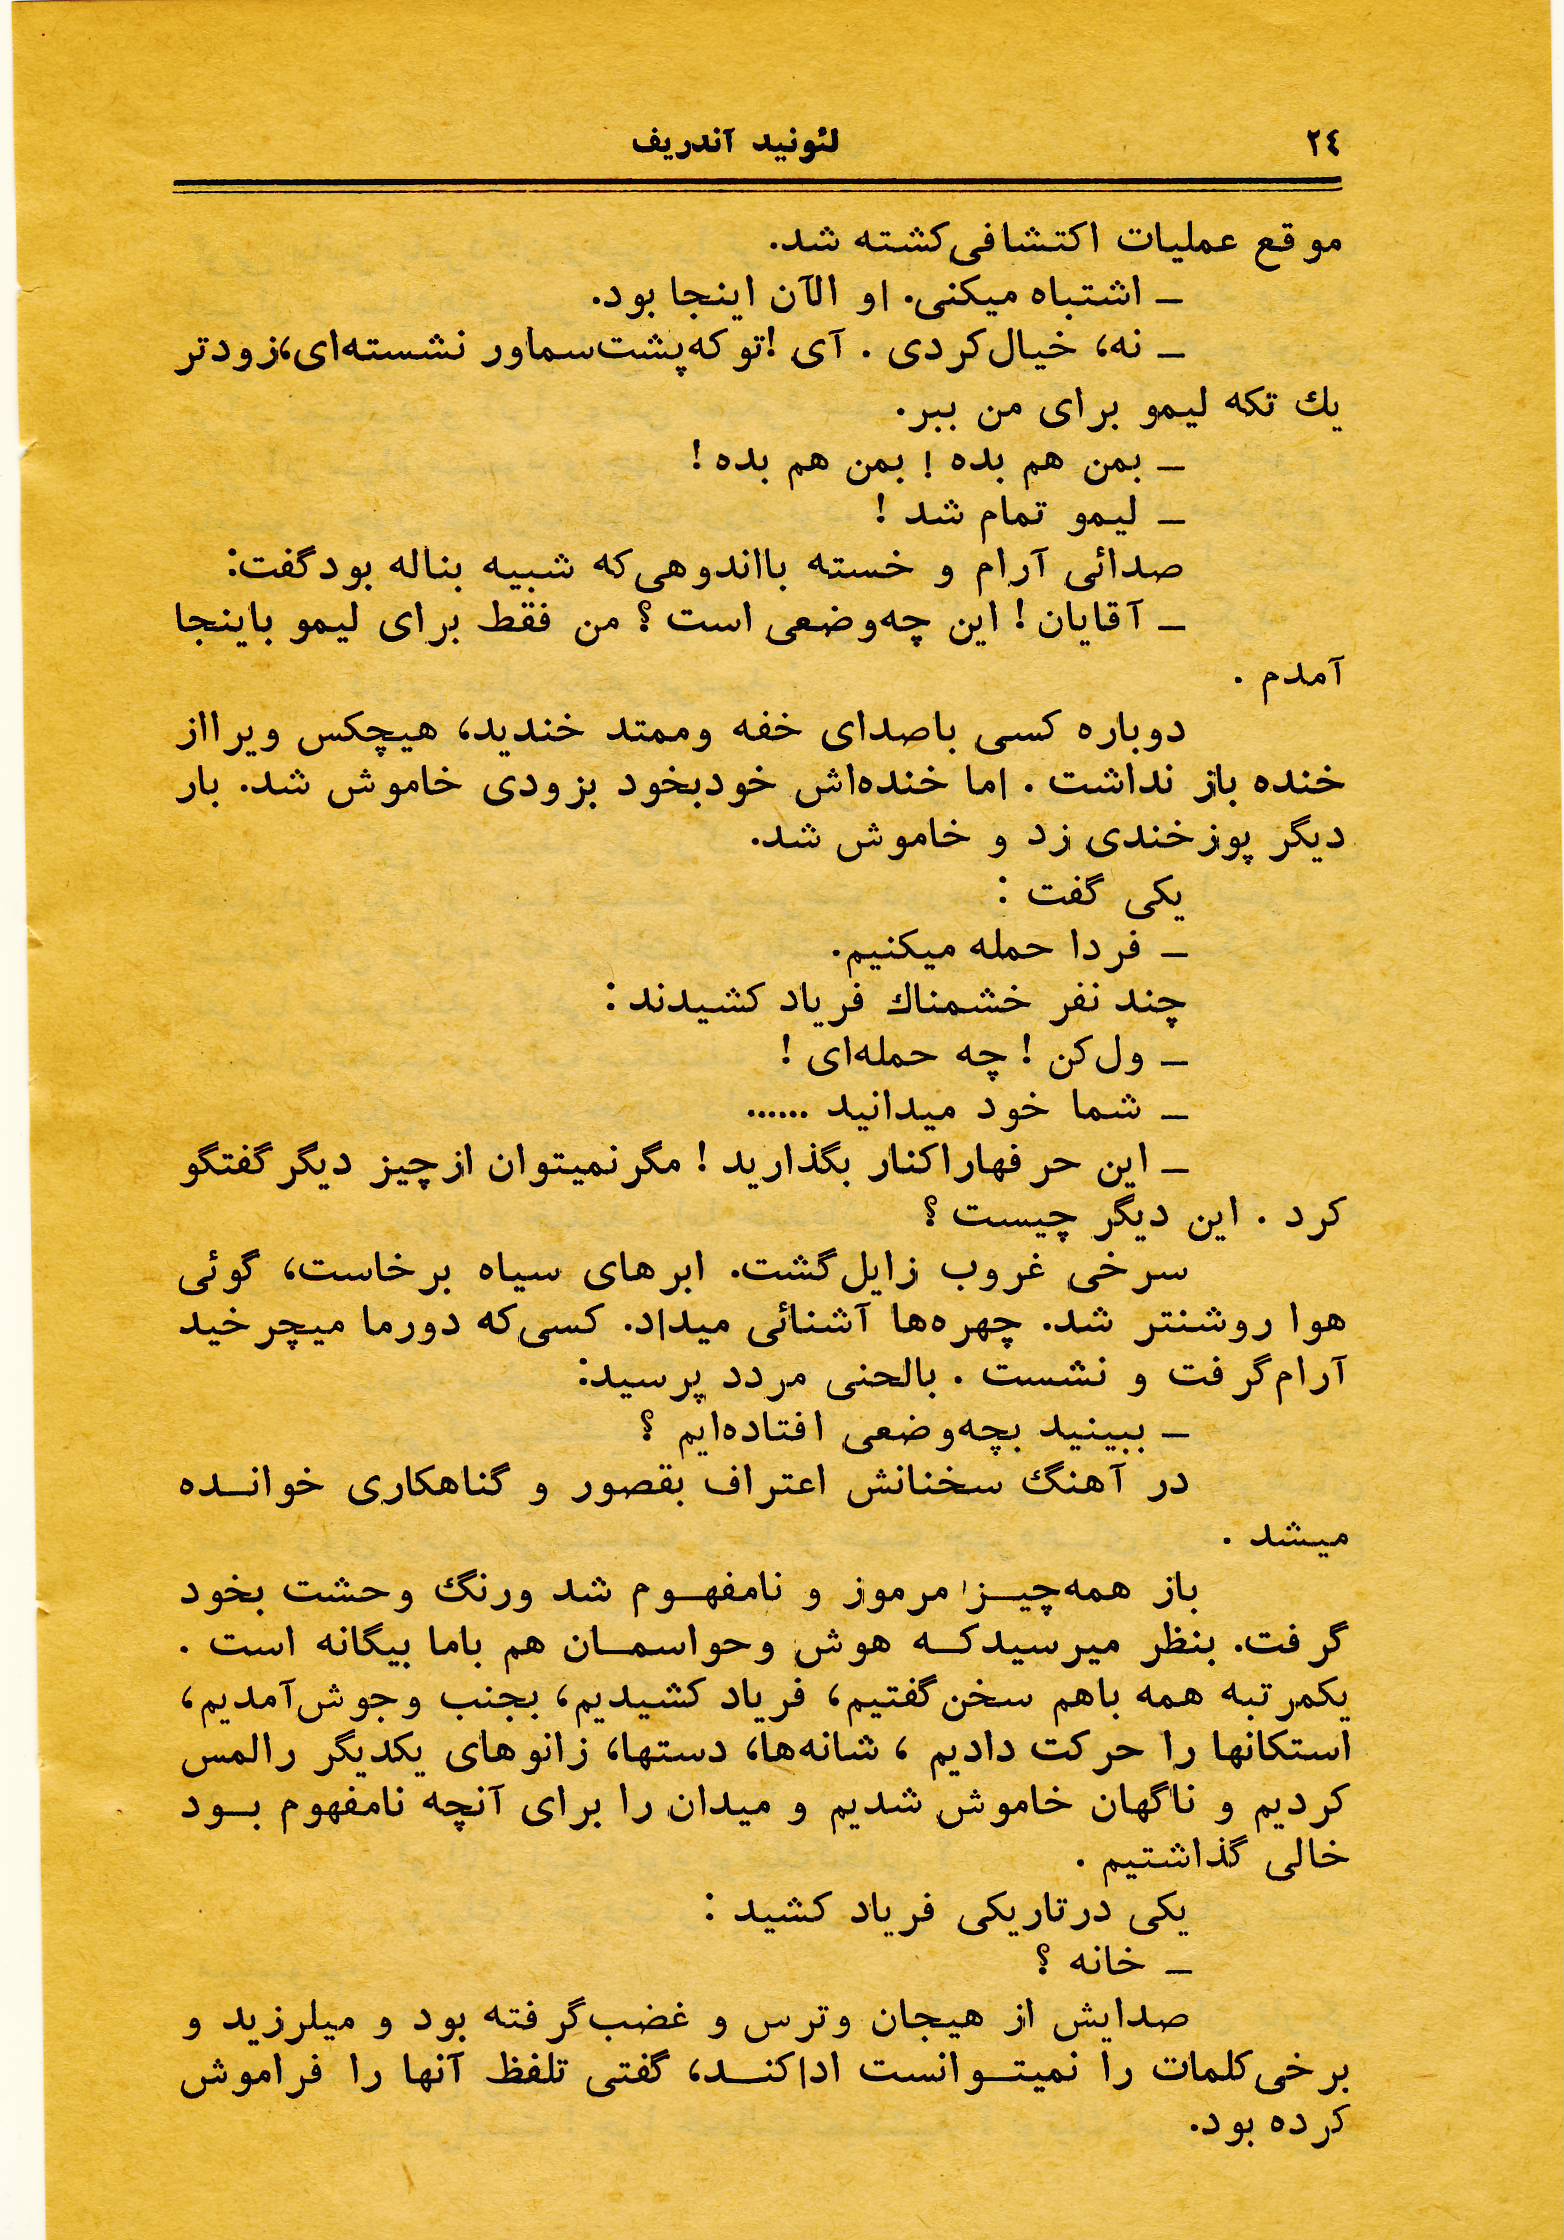 ٢٤ لئونید آندریف
موقع عملیات اکتشافی‌کشته شد.
ـ اشتباه میکنی. او الآن اینجا بود.
ـ نه، خیال‌کردی . آی !تو که‌پشت‌سماور نشسته‌ای،زودتر
یك تکه لیمو برای من ببر.
ـ بمن هم بده ! بمن هم بده !
ـ لیمو تمام شد !
صدائی آرام و خسته بااندوهی‌که شبیه بناله بودگفت:
ـ آقایان ! این چه‌وضعی است ؟ من فقط برای لیمو باینجا
آمدم .
دوباره کسی باصدای خفه وممتد خندید، هیچکس ویرااز
خنده باز نداشت . اما خنده‌اش خودبخود بزودی خاموش شد. بار
دیگر پوزخندی زد و خاموش شد.
یکی گفت :
ـ فردا حمله میکنیم.
چند نفر خشمناك فریاد کشیدند :
ـ ول‌کن ! چه حمله‌ای !
ـ شما خود میدانید ......
ـ این حرفهاراکنار بگذارید ! مگرنمیتوان ازچیز دیگرگفتگو
کرد . این دیگر چیست ؟
سرخی غروب زایل‌گشت. ابرهای سیاه برخاست، گوئی
هوا روشنتر شد. چهره‌ها آشنائی میداد. کسی‌که دورما میچرخید
آرام‌گرفت و نشست . بالحنی مردد پرسید:
ـ ببینید بچه‌وضعی افتاده‌ایم ؟
در آهنگ سخنانش اعتراف بقصور و گناهکاری خوانـده
میشد .
باز همه‌چیـز مرموز و نامفهـوم شد ورنگ وحشت بخود
گرفت. بنظر میرسیدکـه هوش وحواسمـان هم باما بیگانه است .
یکمرتبه همه باهم سخن‌گفتیم، فریاد کشیدیم، بجنب وجوش‌آمدیم،
استکانها را حرکت دادیم ، شانه‌ها، دستها، زانوهای یکدیگر رالمس
کردیم و ناگهان خاموش شدیم و میدان را برای آنچه نامفهوم بـود
خالی گذاشتیم .
یکی درتاریکی فریاد کشید :
ـ خانه ؟
صدایش از هیجان وترس و غضب‌گرفته بود و میلرزید و
برخی‌کلمات را نمیتـوانست اداکنـد، گفتی تلفظ آنها را فراموش
کرده بود.